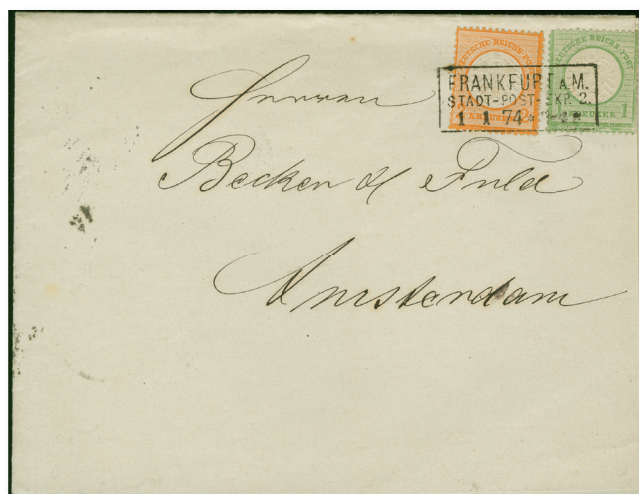 DEUTSCHE REICHS-POST
DEUTSCHE REICHS-POST
FRANKFURT A.M.
STADT-POST-EXP. 2.
1 1 74
2
KREUZER
1
KREUZER 1
Herren
Becker & Fuld
Amsterdam